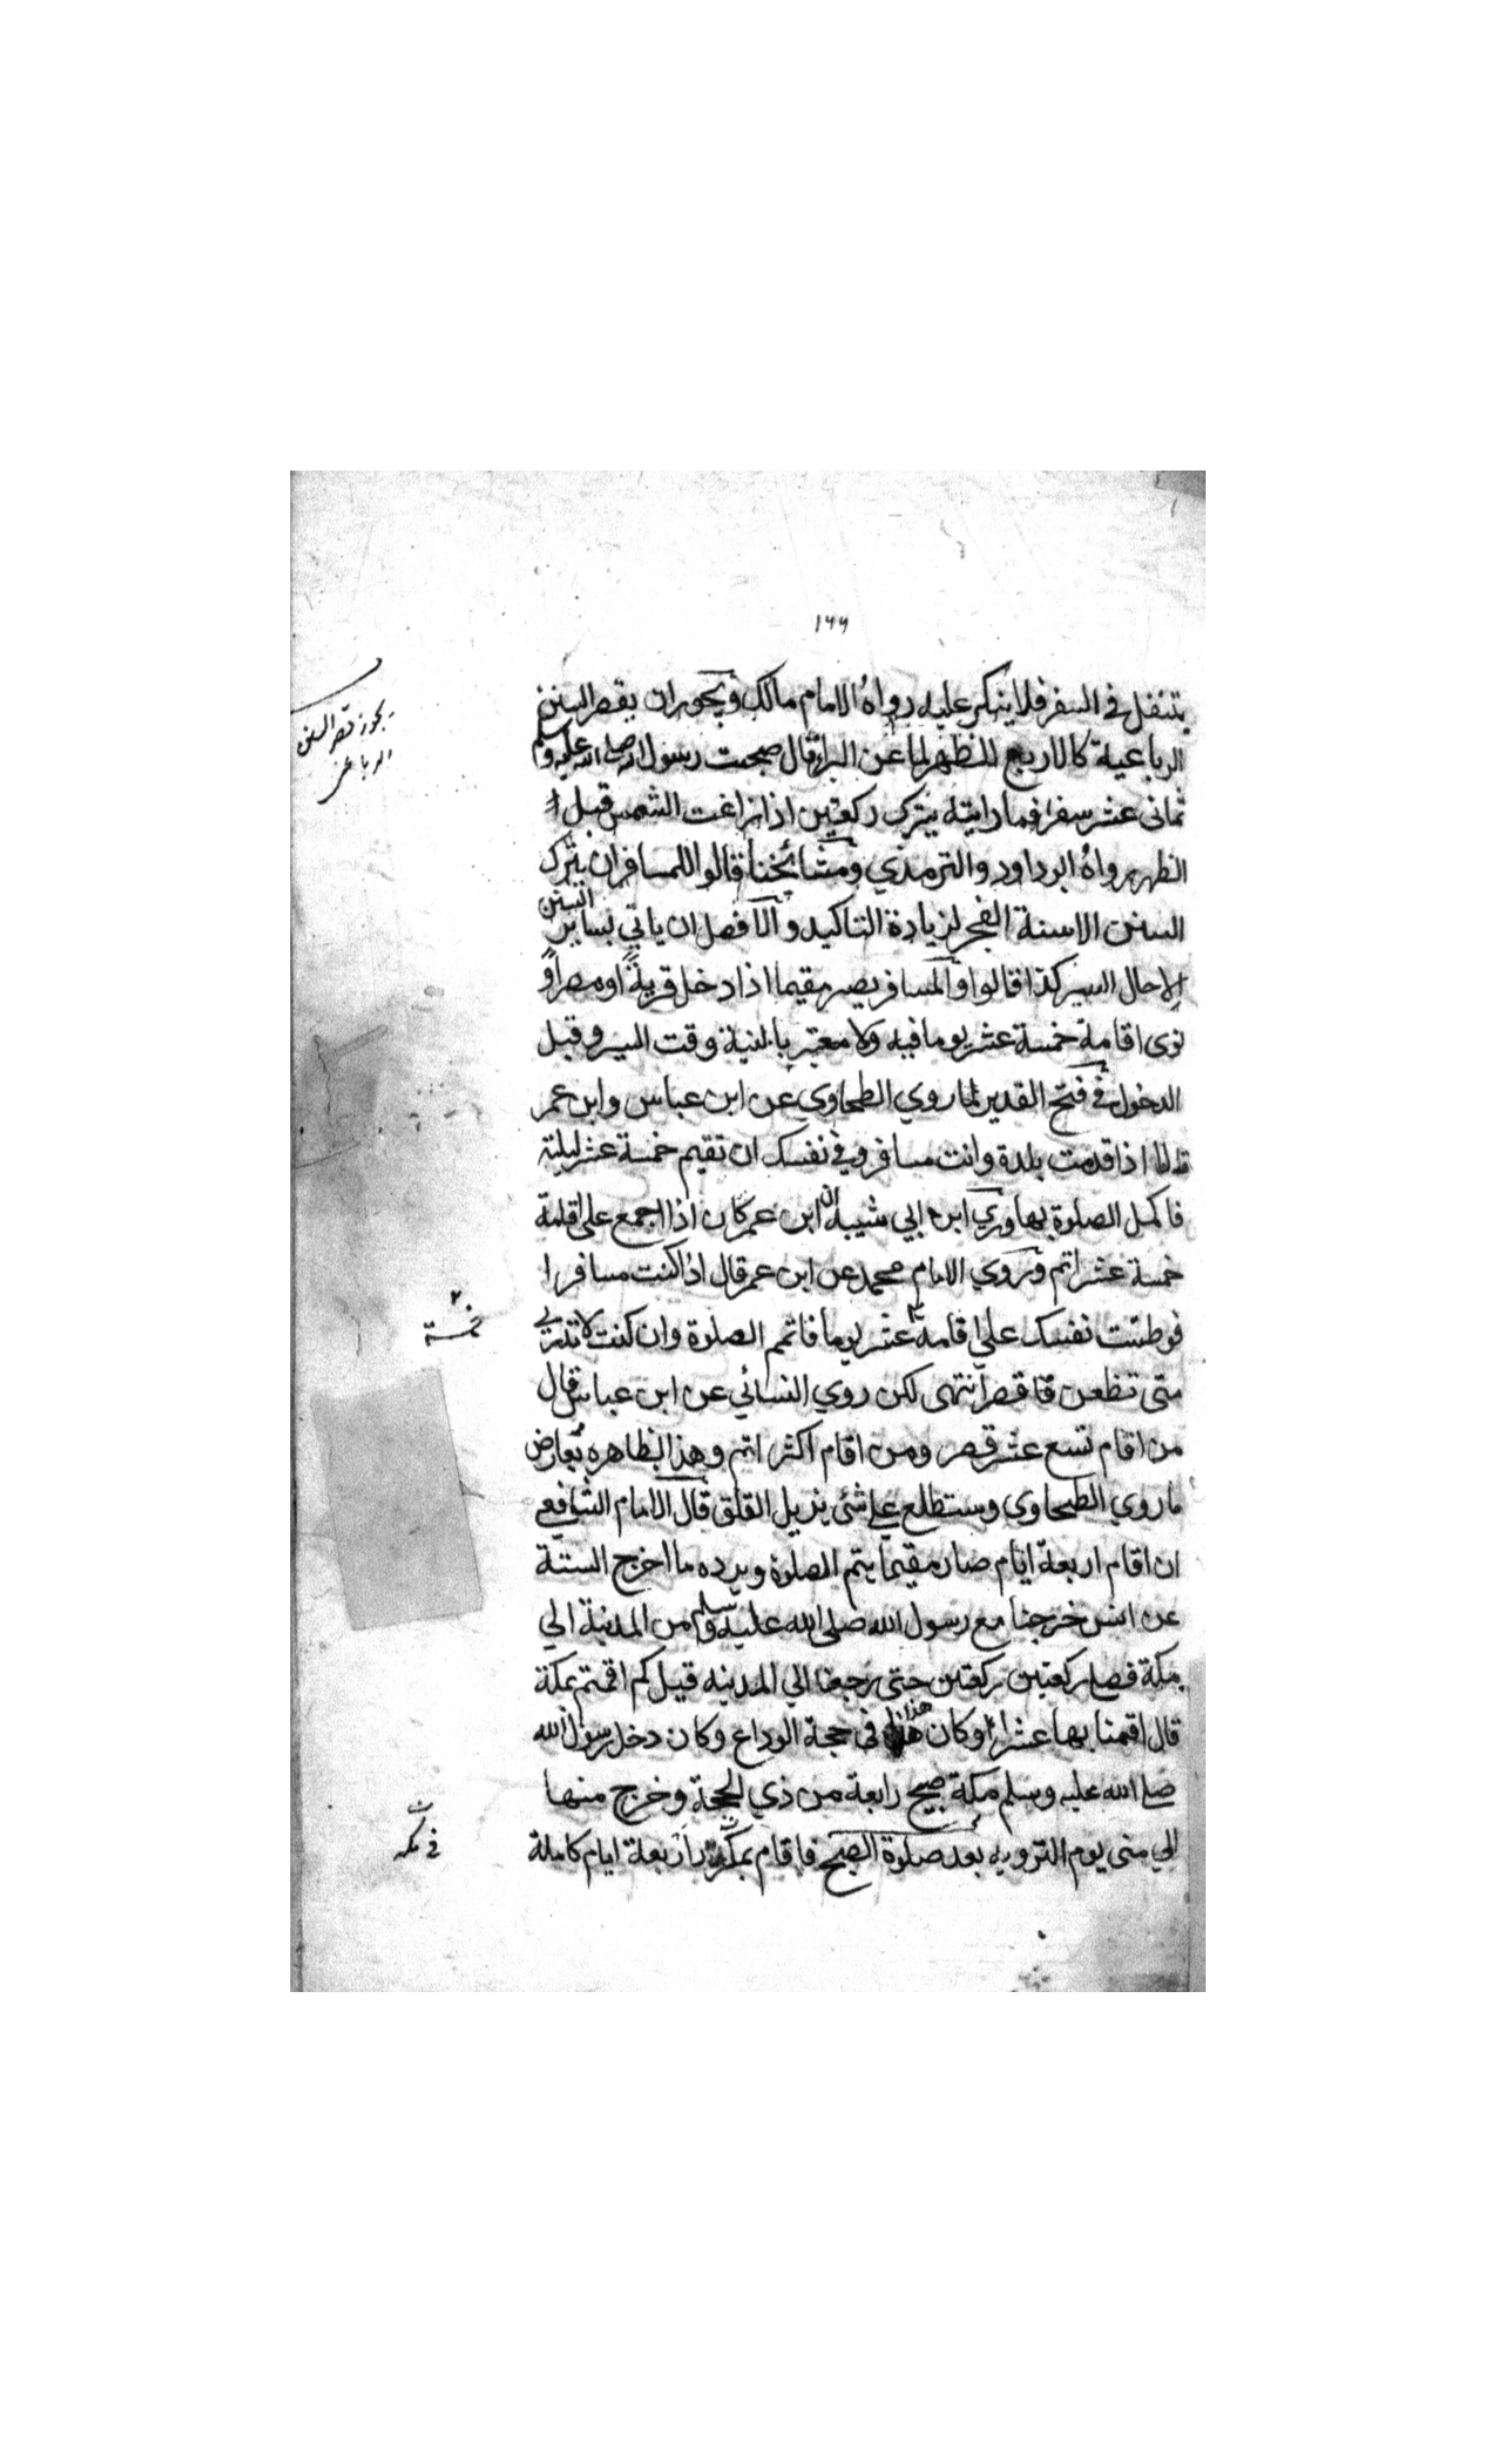 ١٩٩
يتنفل في السفر فلا ينكر عليه رواه الامام مالك ويجوز ان يقصر السنن
الرباعية كالاربع للظهر لما عن البراء قال صحبت رسول الله صلى الله عليه وسلم
ثماني عشر سفرا فما رايته يترك ركعتين اذا زاغت الشمس قبل
الظهر رواه ابو داود والترمذي ومشائخنا قالوا للمسافر ان يترك
السنن الا سنة الفجر لزيادة التاكيد والافضل ان ياتي بساير السنن
الا حال السير كذا قالوا والمسافر يصير مقيما اذا دخل قرية او مصرا و
نوى اقامة خمسة عشر يوما فيه ولا معتبر بالنية وقت السير وقبل
الدخول في فتح القدير لما روي الطحاوي عن ابن عباس وابن عمر
قالا اذا قدمت بلدة وانت مسافر وفي نفسك ان تقيم خمسة عشر ليلة
فاكمل الصلوة بها وروي ابن ابي شيبة ان ابن عمر كان اذا اجمع على اقامة
خمسة عشر اتم وروي الامام محمد عن ابن عمر قال اذا كنت مسافرا
فوطنت نفسك على اقامة عشر يوما فاتمم الصلوة وان كنت لا تدري
متى تظعن فاقصر انتهى لكن روي النسائي عن ابن عباس قال
من اقام تسع عشر قصر ومن اقام اكثر اتم وهذا بظاهره يعارض
ما روي الطحاوي وستطلع على شئ يزيل القلق قال الامام الشافعي
ان اقام اربعة ايام صار مقيما يتم الصلوة ويرده ما اخرج الستة
عن انس خرجنا مع رسول الله صلى الله عليه وسلم من المدينة الي
مكة فصلى ركعتين ركعتين حتى رجعنا الي المدينه قيل كم اقمتم بمكة
قال اقمنا بها عشرا وكان هذا في حجة الوداع وكان دخل رسول الله
صلى الله عليه وسلم مكة صبح رابعة من ذي الحجة وخرج منها
الي منى يوم الترويه بعد صلوة الصبح فاقام بمكة اربعة ايام كاملة
يجوز قصر السنن
الرباعي
خمسة
في مكه